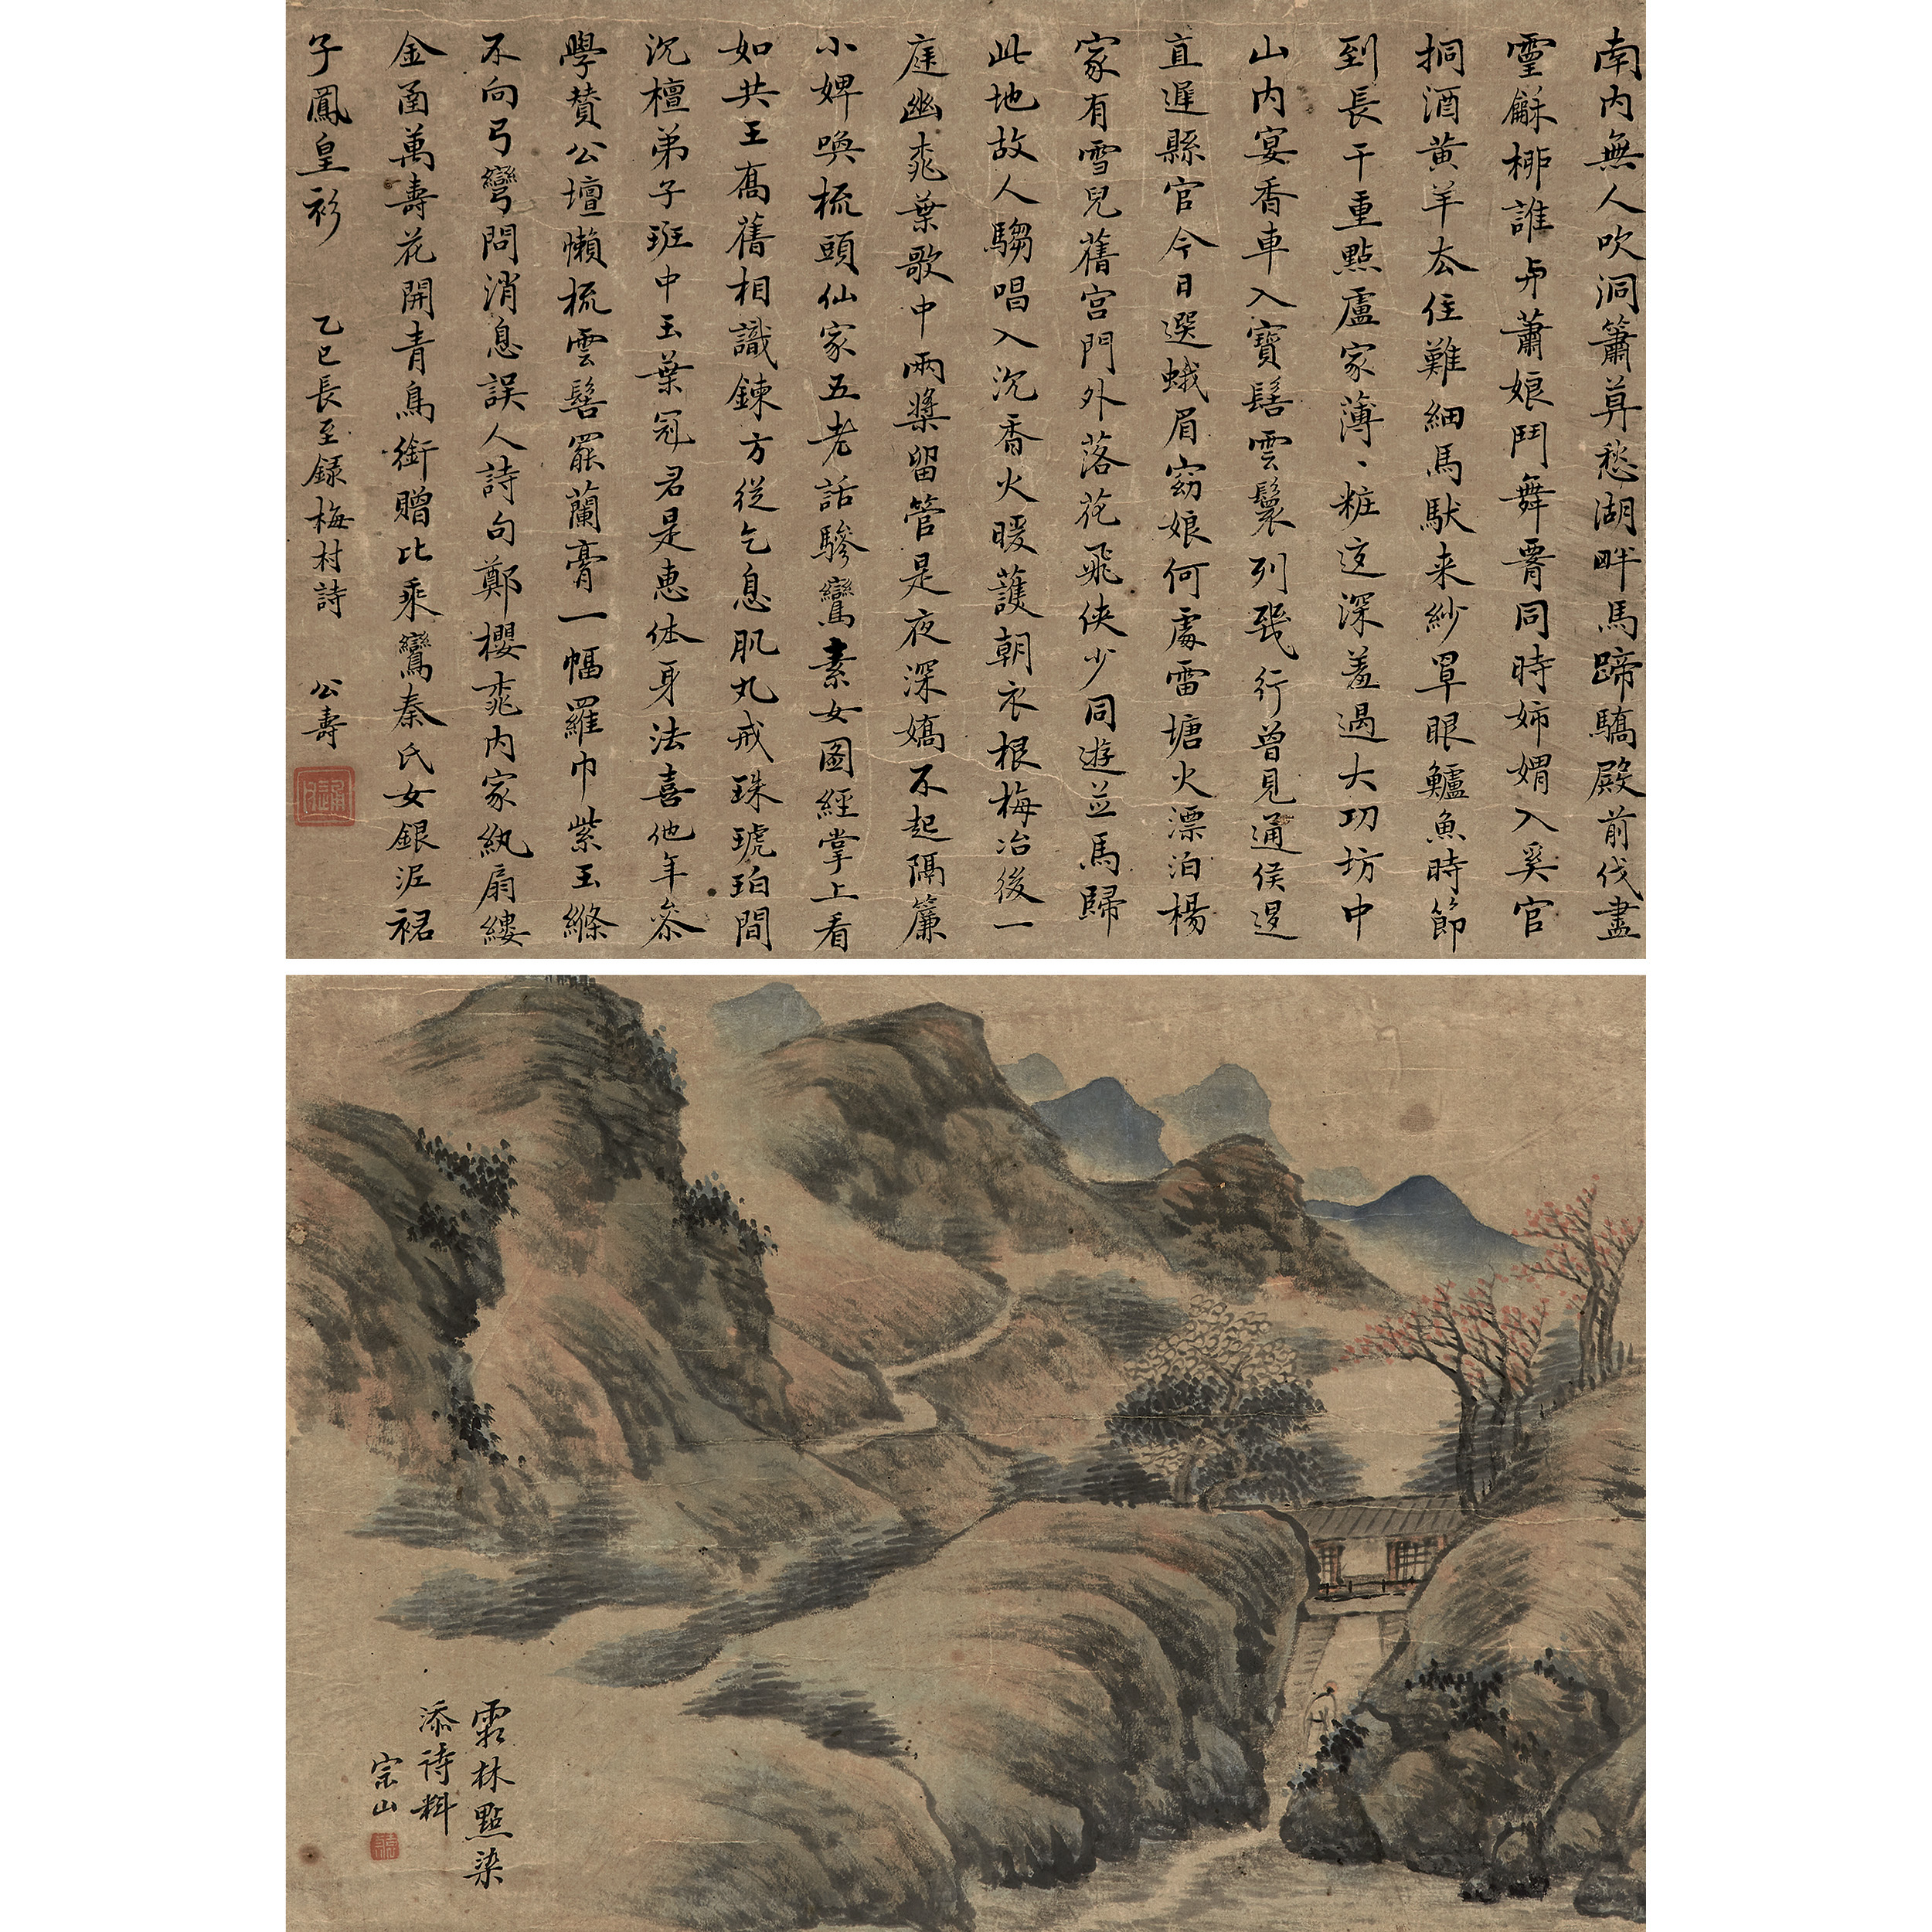 南内無人吹洞簫莫愁湖畔馬蹄驕殿前伐盡
靈龢柳誰與蕭娘鬥舞霄同時姊媦入奚官
挏酒黃羊去住難細馬馱來紗罩眼鱸魚時節
到長干重點盧家薄、粧這深羞過大功坊中
山内宴香車入寶髻雲鬟列幾行曾見通侯退
直遲縣官今日選蛾眉窈娘何處雷塘火漂泊楊
家有雪兒舊宮門外落花飛俠少同遊並馬歸
此地故人騶唱入沉香火暖護朝衣根梅冶後一
庭幽桃葉歌中兩槳留管是夜深嬌不起隔簾
小婢喚梳頭仙家五老話驂鸞素女圖經掌上看
如共王喬舊相識鍊方從乞息肌丸戒珠琥珀間
沉檀弟子班中玉葉冠君是惠休身法喜他年參
學贊公壇懶梳雲髻罷蘭膏一幅羅巾紫玉絛
不向弓彎問消息誤人詩句鄭櫻桃内家紈扇縷
金函萬壽花開青鳥銜贈比乘鸞秦氏女銀泥裙
子鳳皇衫 乙巳長至錄梅村詩 公壽
霜林點染
添詩料
宗山